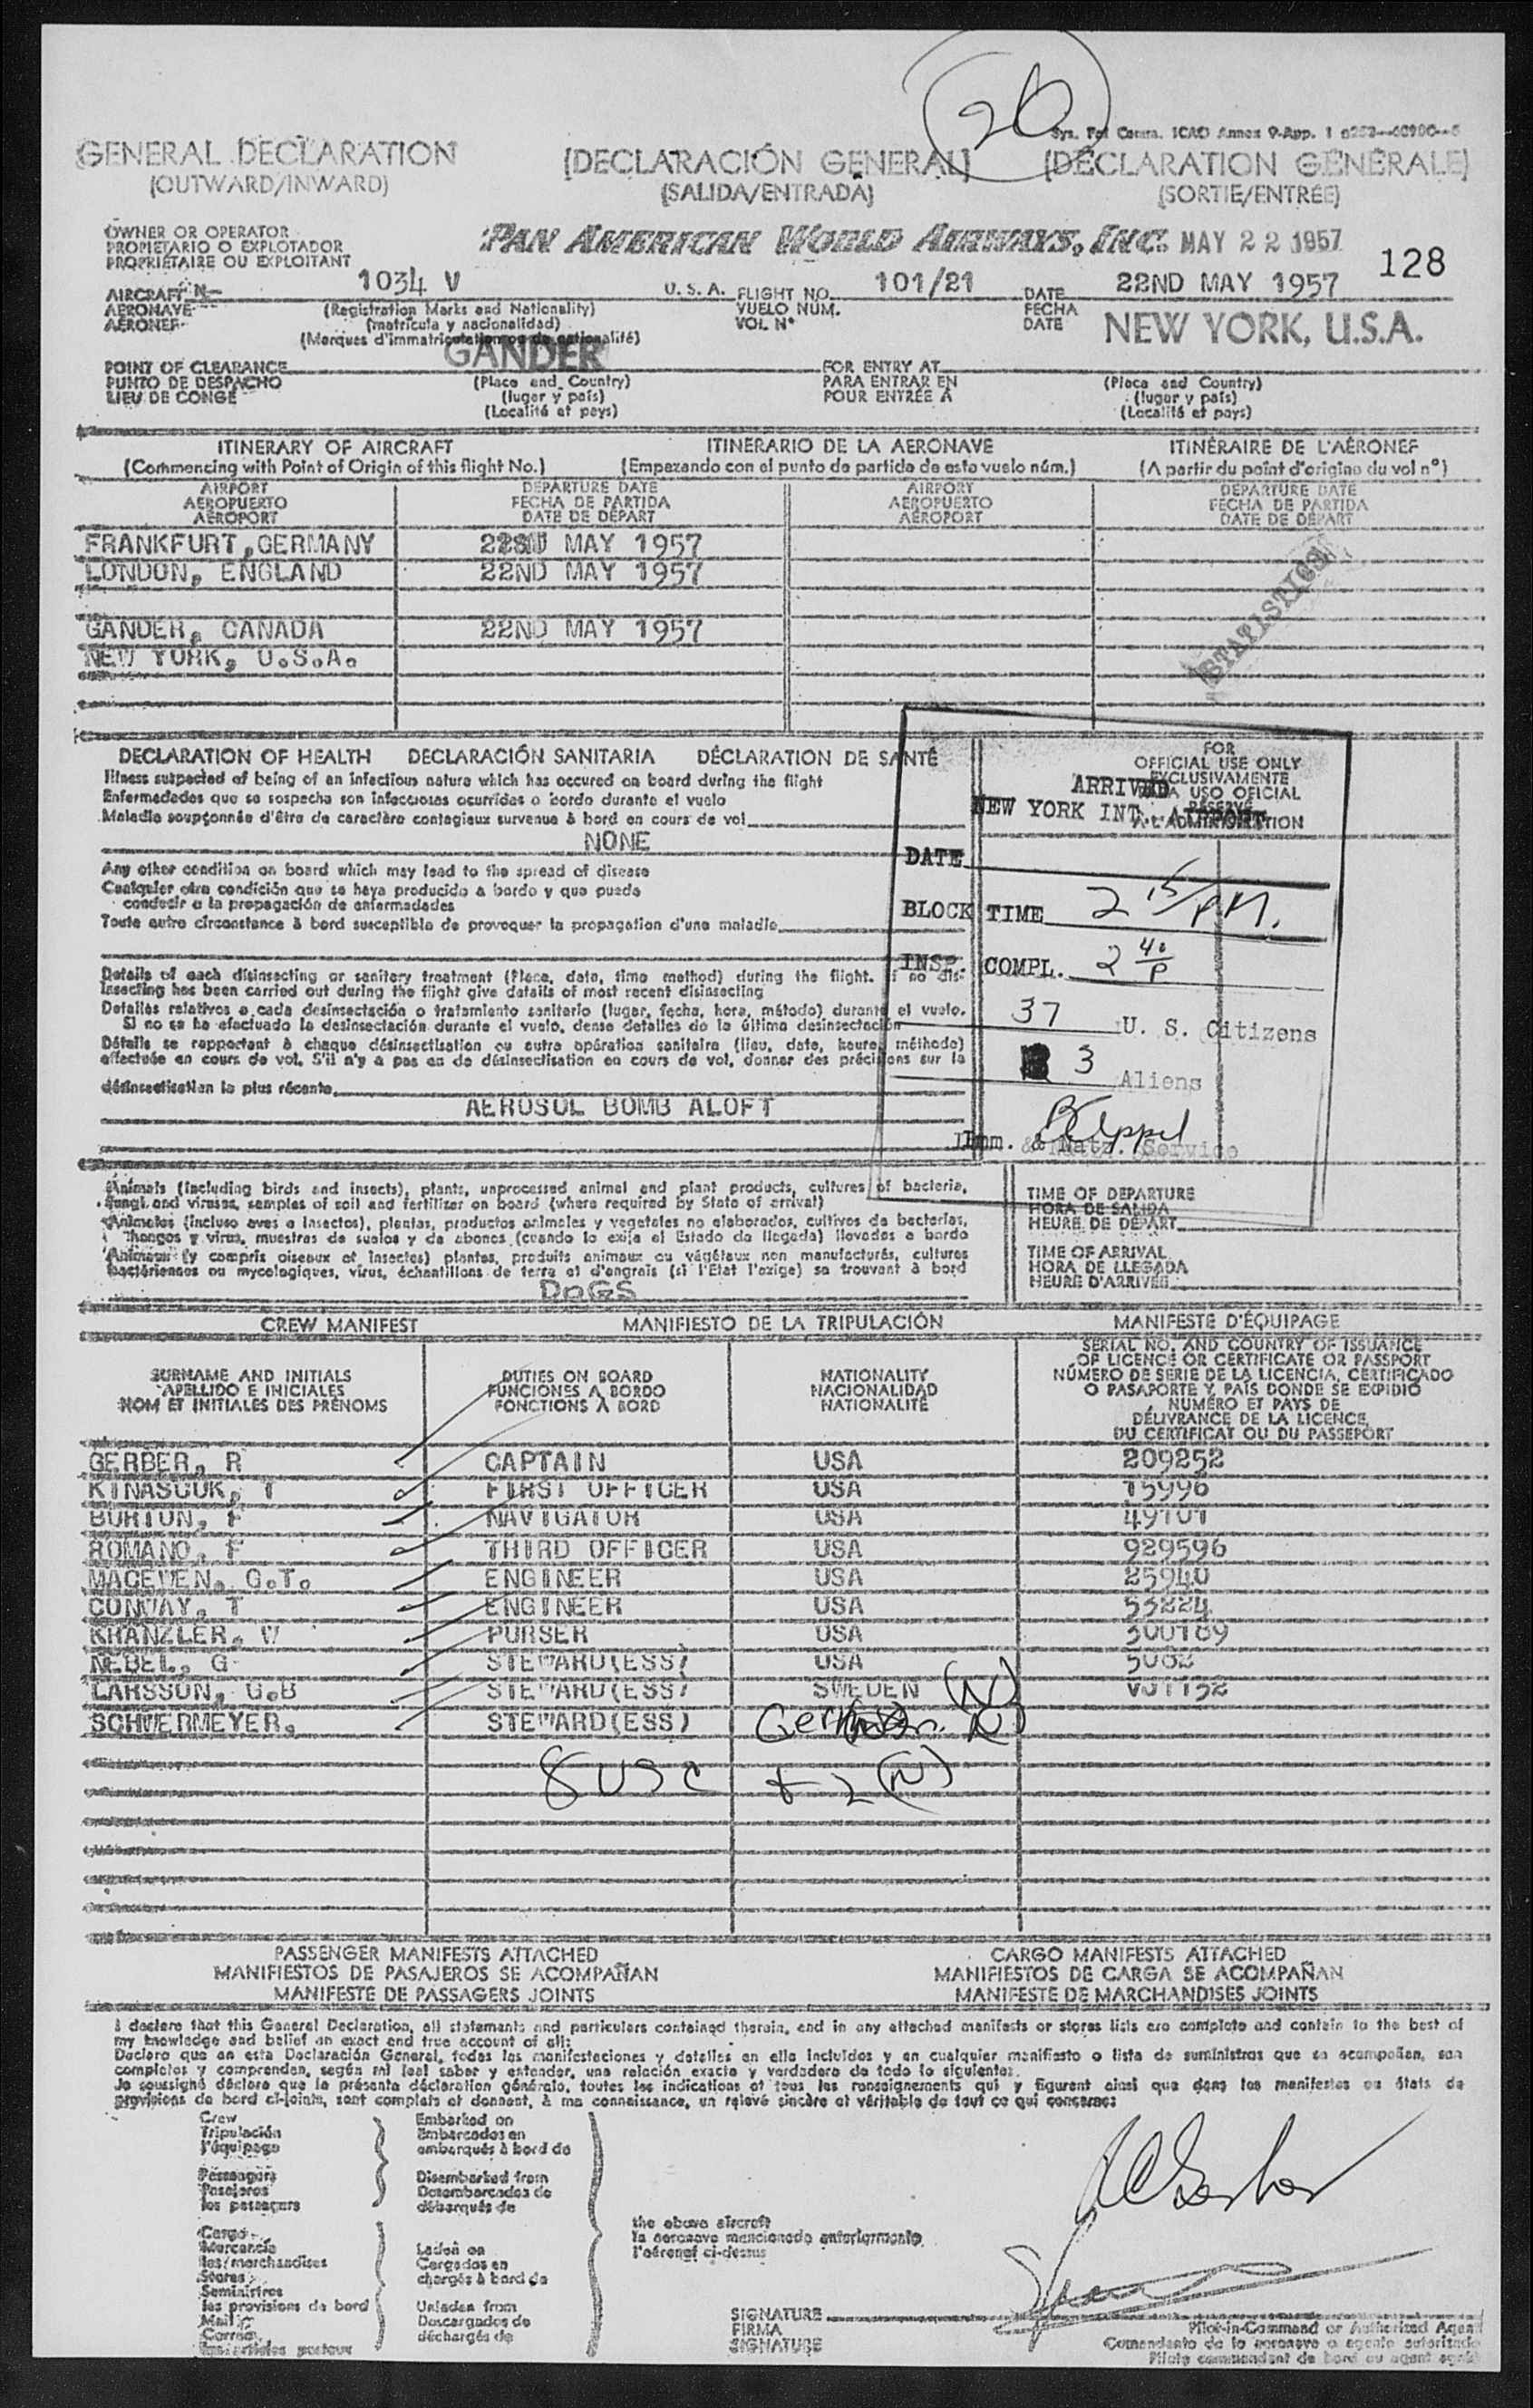 26
Annex 9-App. 1
GENERAL DECLARATION [DECLARACIÓN GENERAL] [DÉCLARATION GÉNÉRALE]
(OUTWARD/INWARD) (SALIDA/ENTRADA) (SORTIE/ENTRÉE)
OWNER OR OPERATOR
PROPIETARIO O EXPLOTADOR
PROPRIÉTAIRE OU EXPLOITANT
PAN AMERICAN WORLD AIRWAYS, INC. MAY 22 1957
128
AIRCRAFT N- 1034 V U.S.A. FLIGHT NO. 101/21 DATE 22ND MAY 1957
AERONAVE (Registration Marks and Nationality) VUELO NUM. FECHA
AÉRONEF (matrícula y nacionalidad) VOL N° DATE
(Marques d'immatriculation ou de nationalité)
NEW YORK, U.S.A.
GANDER
POINT OF CLEARANCE FOR ENTRY AT
PUNTO DE DESPACHO (Place and Country) PARA ENTRAR EN (Place and Country)
LIEU DE CONGÉ (lugar y país) POUR ENTRÉE À (lugar y país)
(Localité et pays) (Localité et pays)
ITINERARY OF AIRCRAFT ITINERARIO DE LA AERONAVE ITINÉRAIRE DE L'AÉRONEF
(Commencing with Point of Origin of this flight No.) (Empezando con el punto de partida de este vuelo núm.) (A partir du point d'origine du vol n°)
AIRPORT DEPARTURE DATE AIRPORT DEPARTURE DATE
AEROPUERTO FECHA DE PARTIDA AEROPUERTO FECHA DE PARTIDA
AÉROPORT DATE DE DÉPART AÉROPORT DATE DE DÉPART
FRANKFURT, GERMANY MAY 1957
LONDON, ENGLAND 22ND MAY 1957
GANDER, CANADA 22ND MAY 1957
NEW YORK, U.S.A.
STATISTICS
DECLARATION OF HEALTH DECLARACIÓN SANITARIA DÉCLARATION DE SANTÉ
Illness suspected of being of an infectious nature which has occured on board during the flight
Enfermedades que se sospecha son infecciosas ocurridas a bordo durante el vuelo
Maladie soupçonnée d'être de caractère contagieux survenue à bord en cours de vol
NONE
Any other condition on board which may lead to the spread of disease
Cualquier otra condición que se haya producido a bordo y que pueda
conducir a la propagación de enfermedades
Toute autre circonstance à bord susceptible de provoquer la propagation d'une maladie
Details of each disinsecting or sanitary treatment (Place, date, time method) during the flight. If no dis-
insecting has been carried out during the flight give details of most recent disinsecting
Detalles relativos a cada desinsectación o tratamiento sanitario (lugar, fecha, hora, método) durante el vuelo.
Si no se ha efectuado la desinsectación durante el vuelo, dense detalles de la última desinsectación
Détails se rapportant à chaque désinsectisation ou autre opération sanitaire (lieu, date, heure, méthode)
effectuée en cours de vol. S'il n'y a pas eu de désinsectisation en cours de vol, donner des précisions sur la
désinsectisation la plus récente
AEROSOL BOMB ALOFT
FOR
OFFICIAL USE ONLY
EXCLUSIVAMENTE
PARA USO OFICIAL
RÉSERVÉ
À L'ADMINISTRATION
ARRIVED
NEW YORK INT. AIRPORT
DATE
BLOCK TIME 2 15/PM.
INSP. COMPL. 2 40/P
37 U. S. Citizens
3 Aliens
Imm. & Natz. Service
Animals (including birds and insects), plants, unprocessed animal and plant products, cultures of bacteria,
fungi and viruses, samples of soil and fertilizer on board (where required by State of arrival)
Animales (incluso aves e insectos), plantas, productos animales y vegetales no elaborados, cultivos de bacterias,
hongos y virus, muestras de suelos y de abonos (cuando lo exija el Estado de llegada) llevados a bordo
Animaux (y compris oiseaux et insectes) plantes, produits animaux ou végétaux non manufacturés, cultures
bactériennes ou mycologiques, virus, échantillons de terre et d'engrais (si l'Etat l'exige) se trouvant à bord
DOGS
TIME OF DEPARTURE
HORA DE SALIDA
HEURE DE DÉPART
TIME OF ARRIVAL
HORA DE LLEGADA
HEURE D'ARRIVÉE
CREW MANIFEST MANIFIESTO DE LA TRIPULACIÓN MANIFESTE D'ÉQUIPAGE
SURNAME AND INITIALS DUTIES ON BOARD NATIONALITY
APELLIDO E INICIALES FUNCIONES A BORDO NACIONALIDAD
NOM ET INITIALES DES PRÉNOMS FONCTIONS À BORD NATIONALITÉ
SERIAL NO. AND COUNTRY OF ISSUANCE
OF LICENCE OR CERTIFICATE OR PASSPORT
NÚMERO DE SERIE DE LA LICENCIA, CERTIFICADO
O PASAPORTE Y PAÍS DONDE SE EXPIDIÓ
NUMÉRO ET PAYS DE
DÉLIVRANCE DE LA LICENCE,
DU CERTIFICAT OU DU PASSEPORT
GERBER, R CAPTAIN USA 209252
KINASCUK, T FIRST OFFICER USA 15996
BURTON, F NAVIGATOR USA 49101
ROMANO, F THIRD OFFICER USA 929596
MACEWEN, G.T. ENGINEER USA 25940
CONWAY, T ENGINEER USA 53224
KRANZLER, W PURSER USA 300189
NEBEL, G STEWARD(ESS) USA 5082
LARSSON, G.B STEWARD(ESS) SWEDEN (N) VJ1152
SCHWERMEYER, STEWARD(ESS) German (N)
8 USC + 2 (N)
PASSENGER MANIFESTS ATTACHED CARGO MANIFESTS ATTACHED
MANIFIESTOS DE PASAJEROS SE ACOMPAÑAN MANIFIESTOS DE CARGA SE ACOMPAÑAN
MANIFESTE DE PASSAGERS JOINTS MANIFESTE DE MARCHANDISES JOINTS
I declare that this General Declaration, all statements and particulars contained therein, and in any attached manifests or stores lists are complete and contain to the best of
my knowledge and belief an exact and true account of all:
Declaro que en esta Declaración General, todas las manifestaciones y detalles en ella incluídos y en cualquier manifiesto o lista de suministros que se acompañan, son
completos y comprenden, según mi leal saber y entender, una relación exacta y verdadera de todo lo siguiente:
Je soussigné déclare que la présente déclaration générale, toutes les indications et tous les renseignements qui y figurent ainsi que dans les manifestes ou états de
provisions de bord ci-joints, sont complets et donnent, à ma connaissance, un relevé sincère et véritable de tout ce qui concerne:
Crew Embarked on
Tripulación Embarcados en
l'équipage embarqués à bord de
Passengers Disembarked from
Pasajeros Desembarcados de
les passagers débarqués de
the above aircraft
la aeronave mencionada anteriormente
l'aéronef ci-dessus
Cargo
Mercancía Laden on
les marchandises Cargados en
Stores chargés à bord de
Suministros
les provisions de bord Unladen from
Mail Descargados de
Correo déchargés de
les articles postaux
SIGNATURE
FIRMA
SIGNATURE
Pilot-in-Command or Authorized Agent
Comandante de la aeronave o agente autorizado
Pilote commandant de bord ou agent agréé